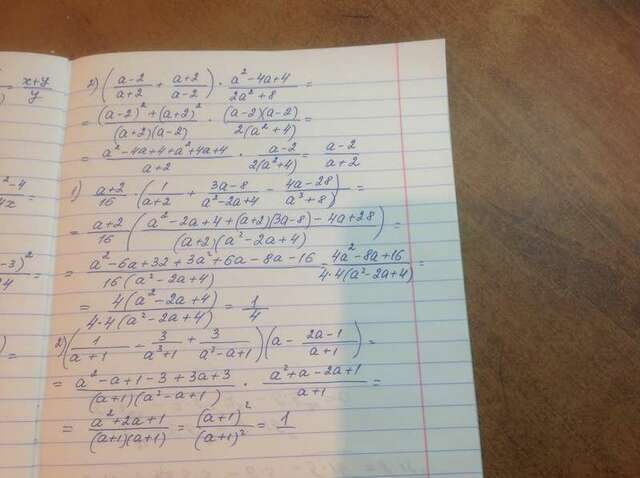 = (x+y)/y
2) ((a-2)/(a+2) + (a+2)/(a-2)) · (a²-4a+4)/(2a²+8) =
= ((a-2)²+(a+2)²)/((a+2)(a-2)) · ((a-2)(a-2))/(2(a²+4)) =
= (a²-4a+4+a²+4a+4)/(a+2) · (a-2)/(2(a²+4)) = (a-2)/(a+2)
1) (a+2)/16 · (1/(a+2) + (3a-8)/(a²-2a+4) - (4a-28)/(a³+8)) =
= (a+2)/16 ((a²-2a+4+(a+2)(3a-8)-4a+28)/((a+2)(a²-2a+4))) =
= (a²-6a+32+3a²+6a-8a-16)/(16(a²-2a+4)) = (4a²-8a+16)/(4·4(a²-2a+4)) =
= (4(a²-2a+4))/(4·4(a²-2a+4)) = 1/4
2) (1/(a+1) - 3/(a³+1) + 3/(a²-a+1)) (a - (2a-1)/(a+1)) =
= (a²-a+1-3+3a+3)/((a+1)(a²-a+1)) · (a²+a-2a+1)/(a+1) =
= (a²+2a+1)/((a+1)(a+1)) = (a+1)²/(a+1)² = 1